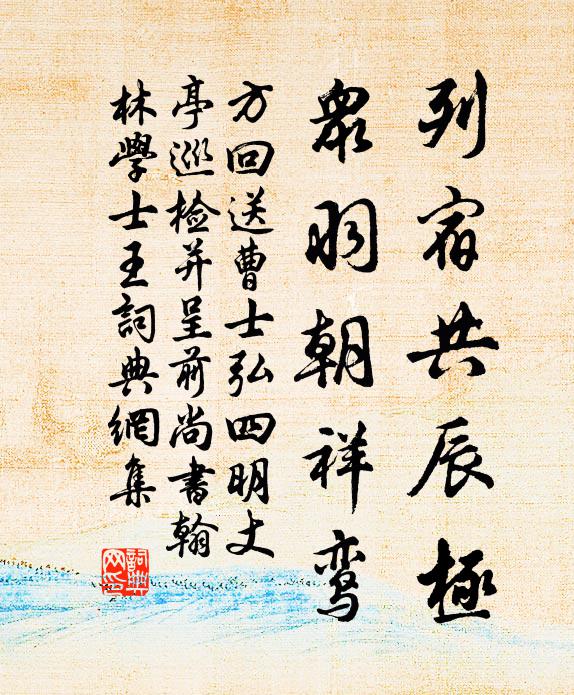 列宿共辰極
眾羽朝祥鸾
方回送曹士弘四明丈
亭巡检并呈前尚書翰
林學士王詞典網集
詞典网印